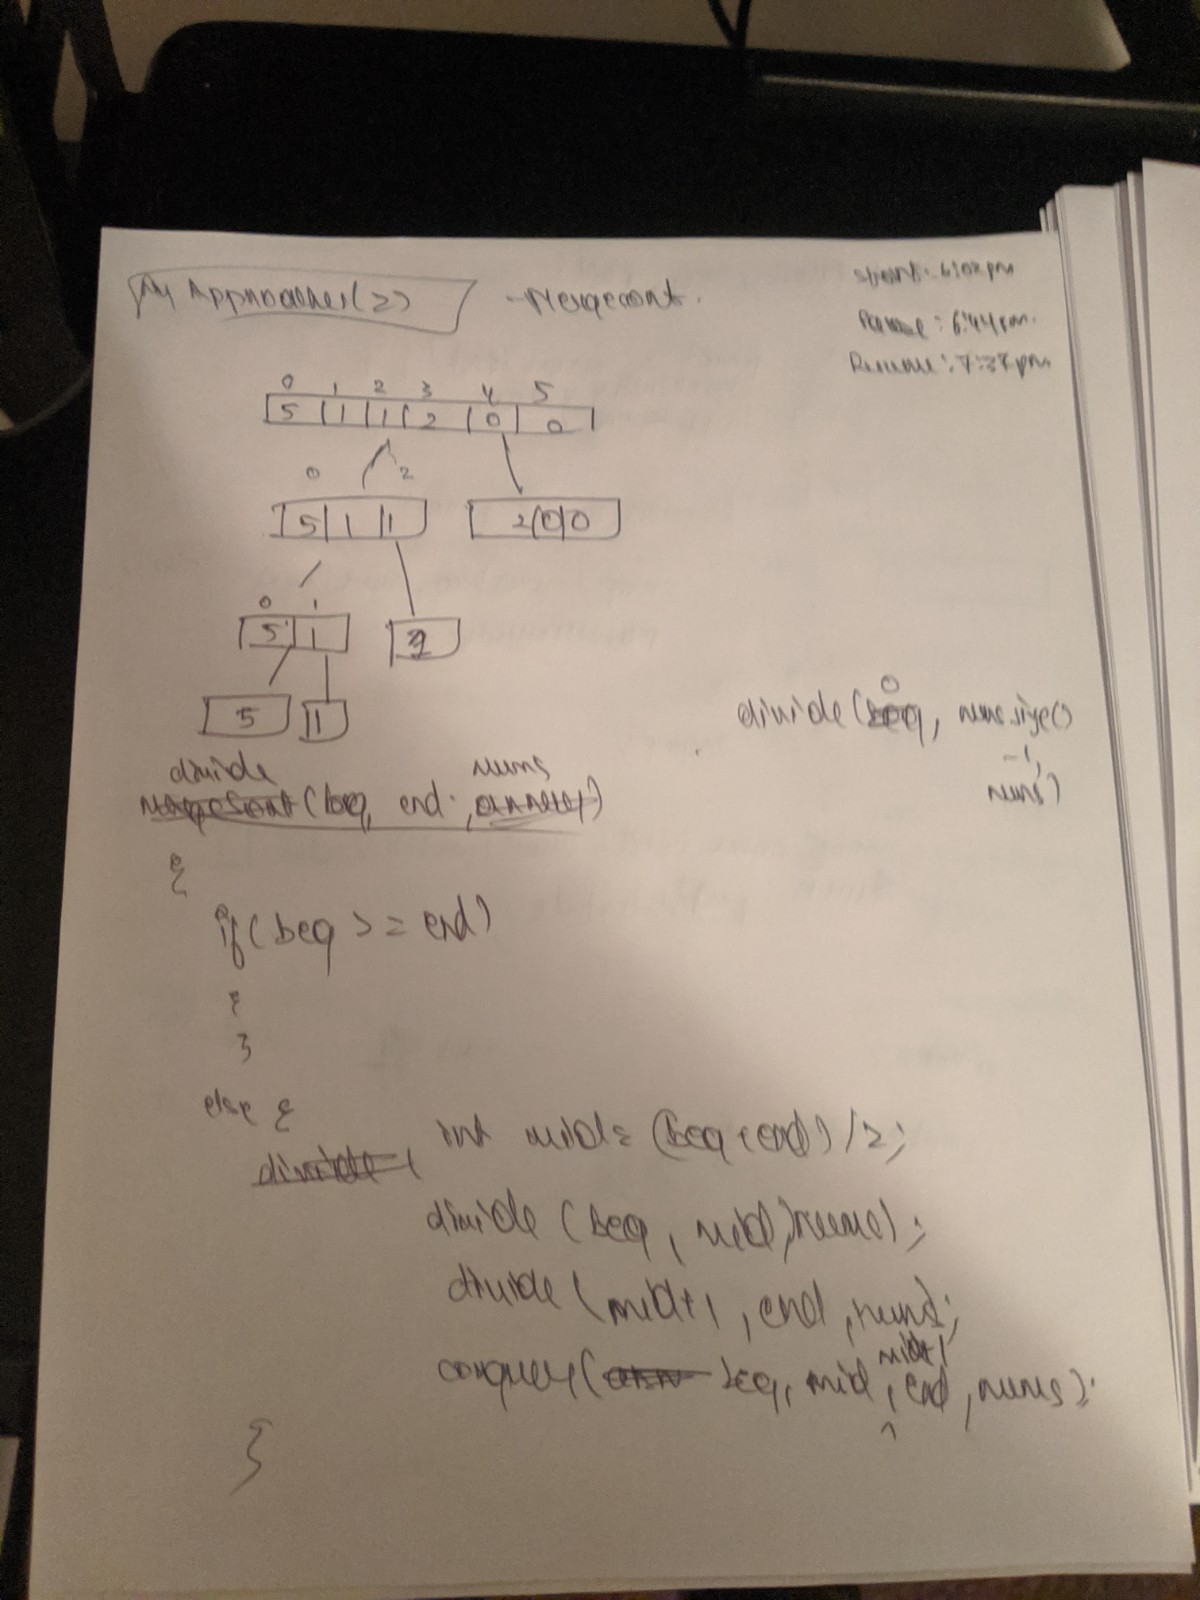 My Approaches(2) - Mergesort.
Start: 6:02 pm
Pause: 6:44 pm.
Resume: 7:37 pm
0 1 2 3 4 5
5 1 1 2 0 0
0 2
5 1 1 2 0 0
0 1
5 1
5 1
divide(0, nums.size()
-1,
nums)
divide nums
(beg, end, )
{
if(beg >= end)
{
}
else {
int mid = (beg+end)/2;
divide (beg, mid, nums);
divide (mid+1, end, nums);
mid+1
conquer( beg, mid, end, nums);
}